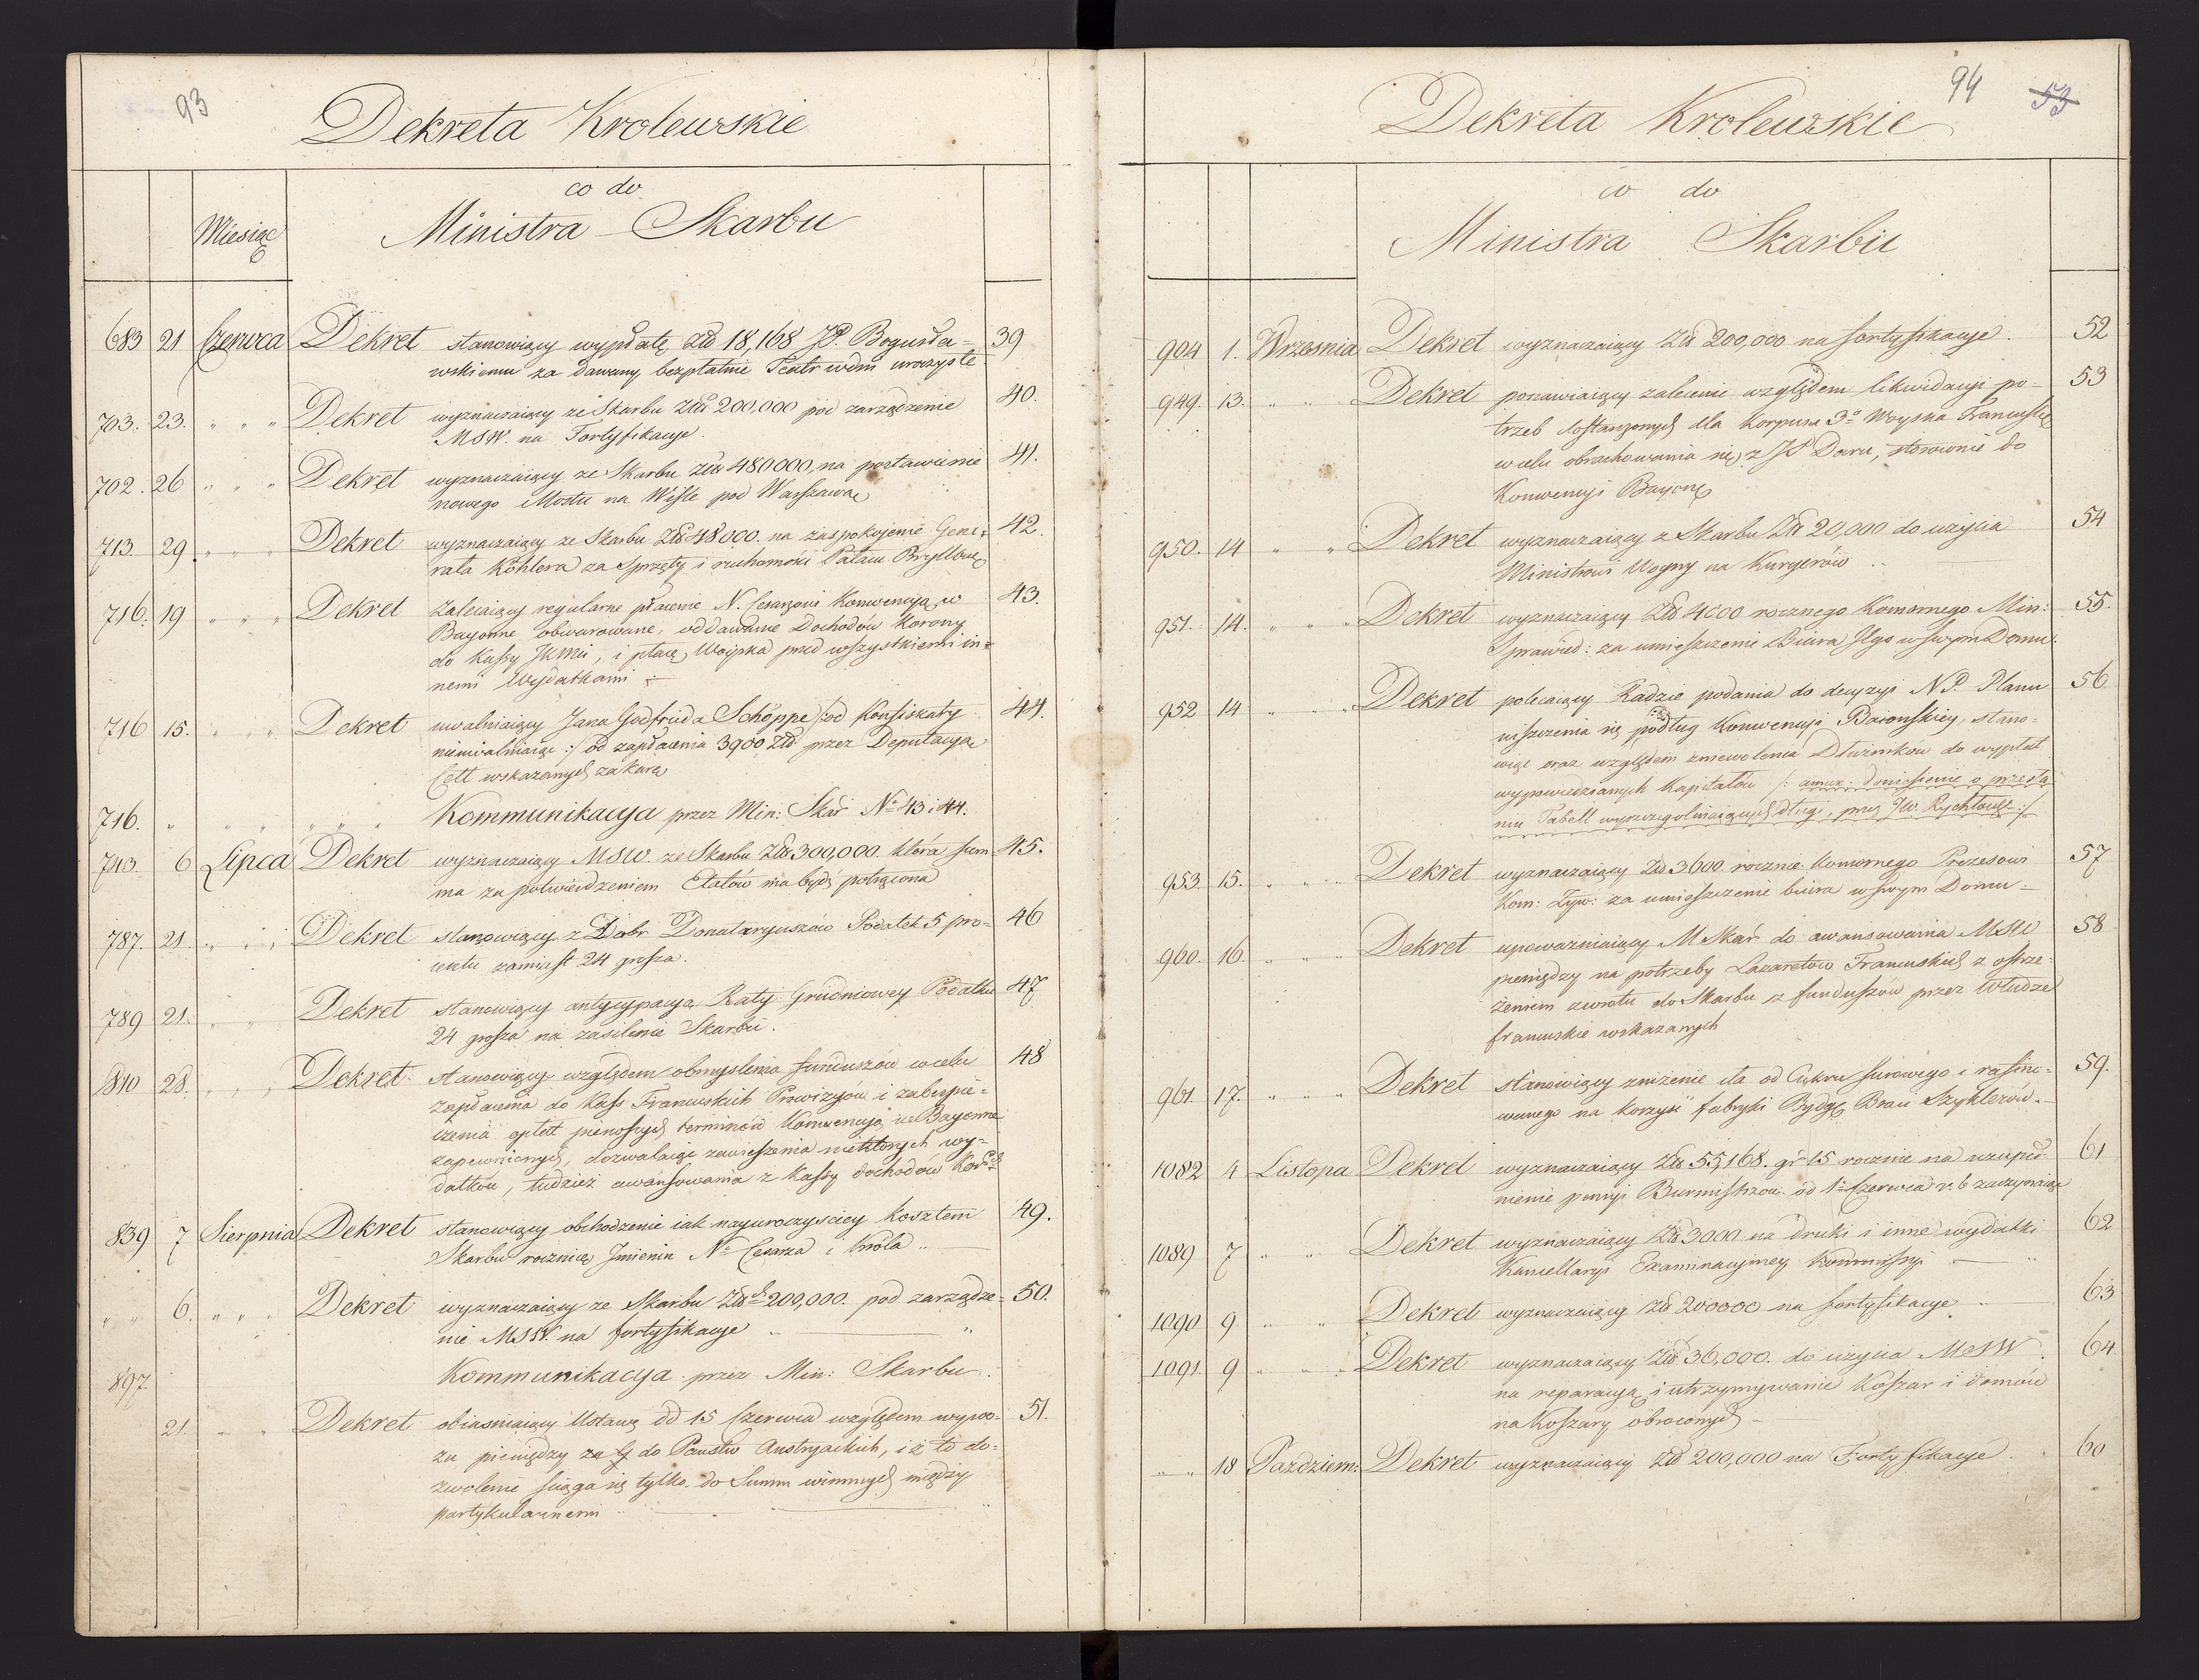 93
Dekreta Krolewskie
co do
Miesiąc
Ministra Skarbu
683 21 Czerwca Dekret stanowiący wypłatę Złł 18,168 JP. Bogusła= 39
wskiemu za dawany bezpłatnie Teatr w dni uroczyste
703. 23. " " " Dekret wyznaczaiący ze Skarbu Złł 200,000 pod zarządzenie 40.
MSW. na Fortyfikacye.
702. 26 " " " Dekret wyznaczaiący ze Skarbu Złł 480000, na postawienie 41.
nowego Mostu na Wiśle pod Warszawą
713 29 " " " Dekret wyznaczaiący ze Skarbu Złł 48000. na zaspokojenie Gene= 42.
rała Köhlera za Sprzęty i ruchomości Pałacu Bryllow
716. 19 " " " Dekret Zaleciaiący regularne płacenie N. Cesarzowi Konwencyą w 43.
Bayonne obwarowane, oddawanie Dochodów Korony
do Kassy JKMci, i płacę Woyska przed wszystkiemi in=
nemi Wydatkami
716 15. " " " Dekret uwalniaiący Jana Godfrieda Schöppe /:od Konfiskaty 44.
nieuwalniaiąc :/ od zapłacenia 3900 Złł przez Deputacyą
Cett wskazanych za karę
716. " " " " " " Kommunikacya przez Min: Skar No 43 i 44.
743. 6 Lipca Dekret wyznaczaiący MSW. ze Skarbu Złł 300,000. która sum= 45.
ma za potwierdzeniem Etatów ma bydź potrącona
787. 21. " " " Dekret stanowiący z Dobr Donataryuszów Podatek 5 pro= 46
centu zamiast 24 grosza.
789 21. " " Dekret stanowiący antycypacyą Raty Grudniowey Podatku 47
24 grosza na zasilenie Skarbu.
810 28. " " " Dekret stanowiący względem obmyslenia funduszów w celu 48
zapłacenia do Kass Francuskich Prowizyów i zabespie=
czenia opłett pierwszych terminów Konwencyą w Bayonne
zapewnionych, dozwalaiąc zawieszenia niektórych wy=
datków, tudzież awansowania z Kassy dochodów Kor
839 7 Sierpnia Dekret stanowiący obchodzenie iak nayuroczyściey kosztem 49.
Skarbu rocznicę Jmienin No Cesarza i Króla
" " 6. " " " Dekret wyznaczaiący ze Skarbu Złł 200,000. pod zarządze= 50.
nie MSW. na fortyfikacye
897. Kommunikacya przez Min: Skarbu.
21. " " Dekret obiasniaiący Ustawę dd 15 Czerwca względem wywo= 51.
zu pieniędzy do Państw Austryackich, iż to do=
zwolenie ściąga się tylko do Summ winnych między
partykularnemi
94 53
Dekreta Krolewskie
co do
Ministra Skarbu
904 1. Wrzesnia Dekret wyznaczaiący Złł 200,000 na fortyfikacye. 52
949. 13. " " Dekret ponawiaiący zalecenie względem likwidacyi po= 53
trzeb dostarczonych dla Korpusu 3o Woyska Francuskie
w celu obrachowania się z JP Daru, stosownie do
Konwencyi Bayon
950. 14 " " Dekret wyznaczaiący z Skarbu Złł 20,000 do użycia 54
Ministrowi Woyny na Kuryerów
951. 14. " " " Dekret wyznaczaiący Złł 4000 rocznego Komornego Min: 55.
Sprawied: za umieszczenie Biura Jego w swym Domu.
952 14 " " Dekret polecaiący Radzie podania do decyzyi NP. Planu 56
uiszczenia się podług Konwencyi Baionskiey, stano=
wiąc oraz względem zniewolenia Dłużników do wypłat
wypowiedzianych Kapitałów /: annex: doniesienie o przesła
niu Tabell wyszczegolniaiących długi, przez JW. Rychłowsk :/
953. 15. " " " Dekret wyznaczaiący Złł 3600. roczne. Komornego Prezesowi 57
Kom: Żyw: za umieszczenie biura w swym Domu
960. 16. " " " Dekret upoważniaiący MSkar do awansowania MSW 58
pieniędzy na potrzeby Lazaretów Francuskich z ostrze=
żeniem zwrotu do Skarbu z funduszów przez Władze
francuskie wskazanych
961. 17. " " " Dekret stanowiący zniżenie cła od Cukru surowego i rafino= 59.
wanego na korzyść fabryki Bydg Braci Szyklerów.
1082 4 Listopa Dekret wyznaczaiący Złł 55,168. gr 15 rocznie na uzupeł= 61
nienie pensyi Burmistrzow. od 1o Czerwca r. b zaczynaiąc
1089 7 " " Dekret wyznaczaiący Złł 3000 na druki i inne wydatki 62
Kancellaryi Examinacyiney Kommissyi
1090 9 " " Dekret wyznaczaiący Złł 200000 na fortyfikacye 63
1091 9 " " Dekret wyznaczaiący Złł 36,000. do użycia MSW. 64
na reparacyą i utrzymywanie Koszar i domów
na Koszary obroconych
" " 18 Pazdziern: Dekret wyznaczaiący Złł 200,000 na Fortyfikacye. 60